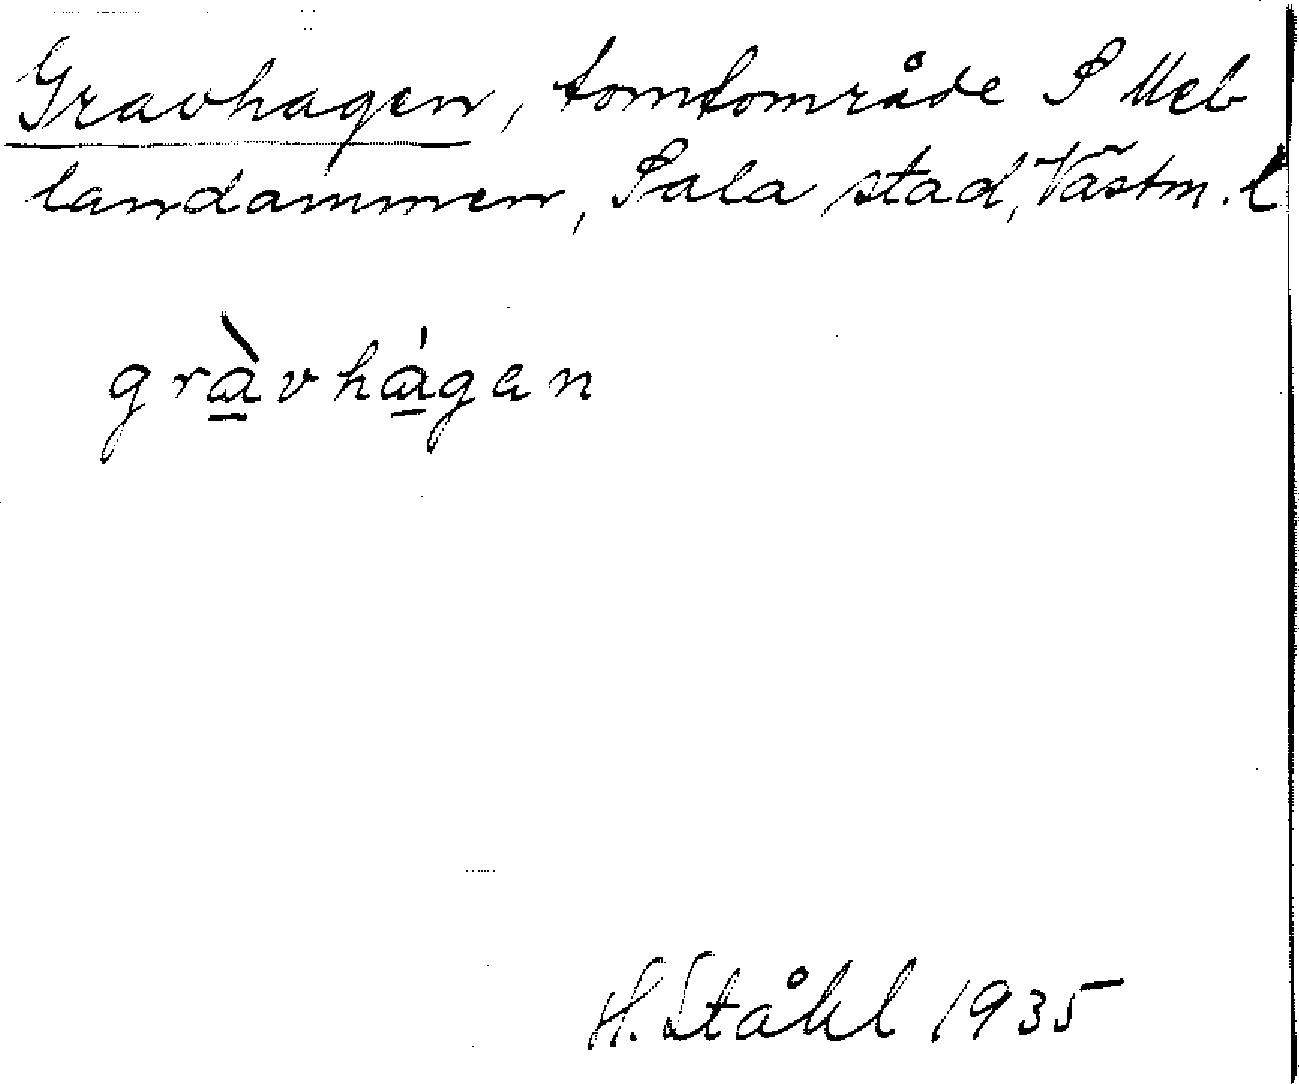 Gravhagen, tomtområde S Mel
landammen, Sala stad, Västm. l
gràvhágen
H. Ståhl 1935